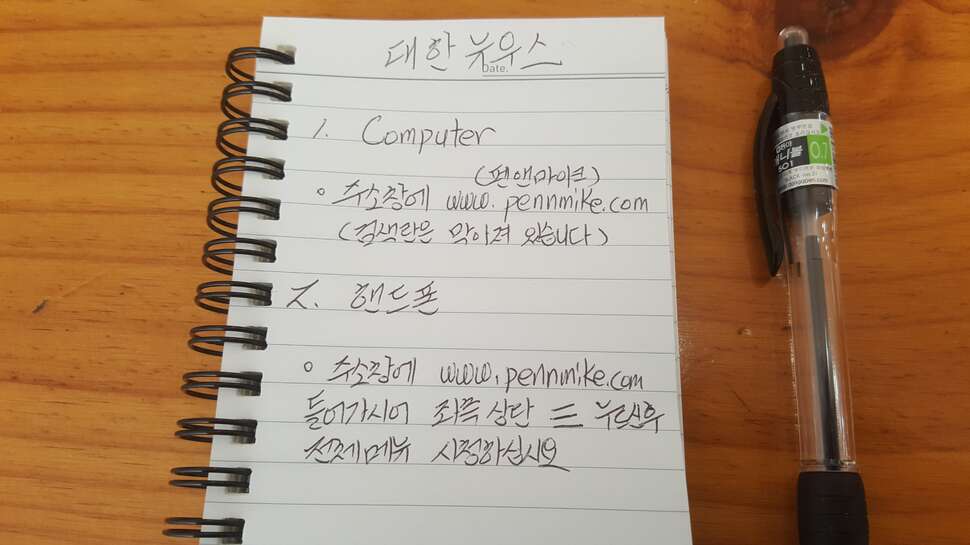 대한뉴우스
Date.
1. Computer
(펜앤마이크)
○ 주소창에 www.pennmike.com
(검색란은 막아져 있습니다)
2. 핸드폰
○ 주소창에 www.pennmike.com
들어가시어 좌측상단 三 누르신후
전체메뉴 시청하십시요
0.7
501